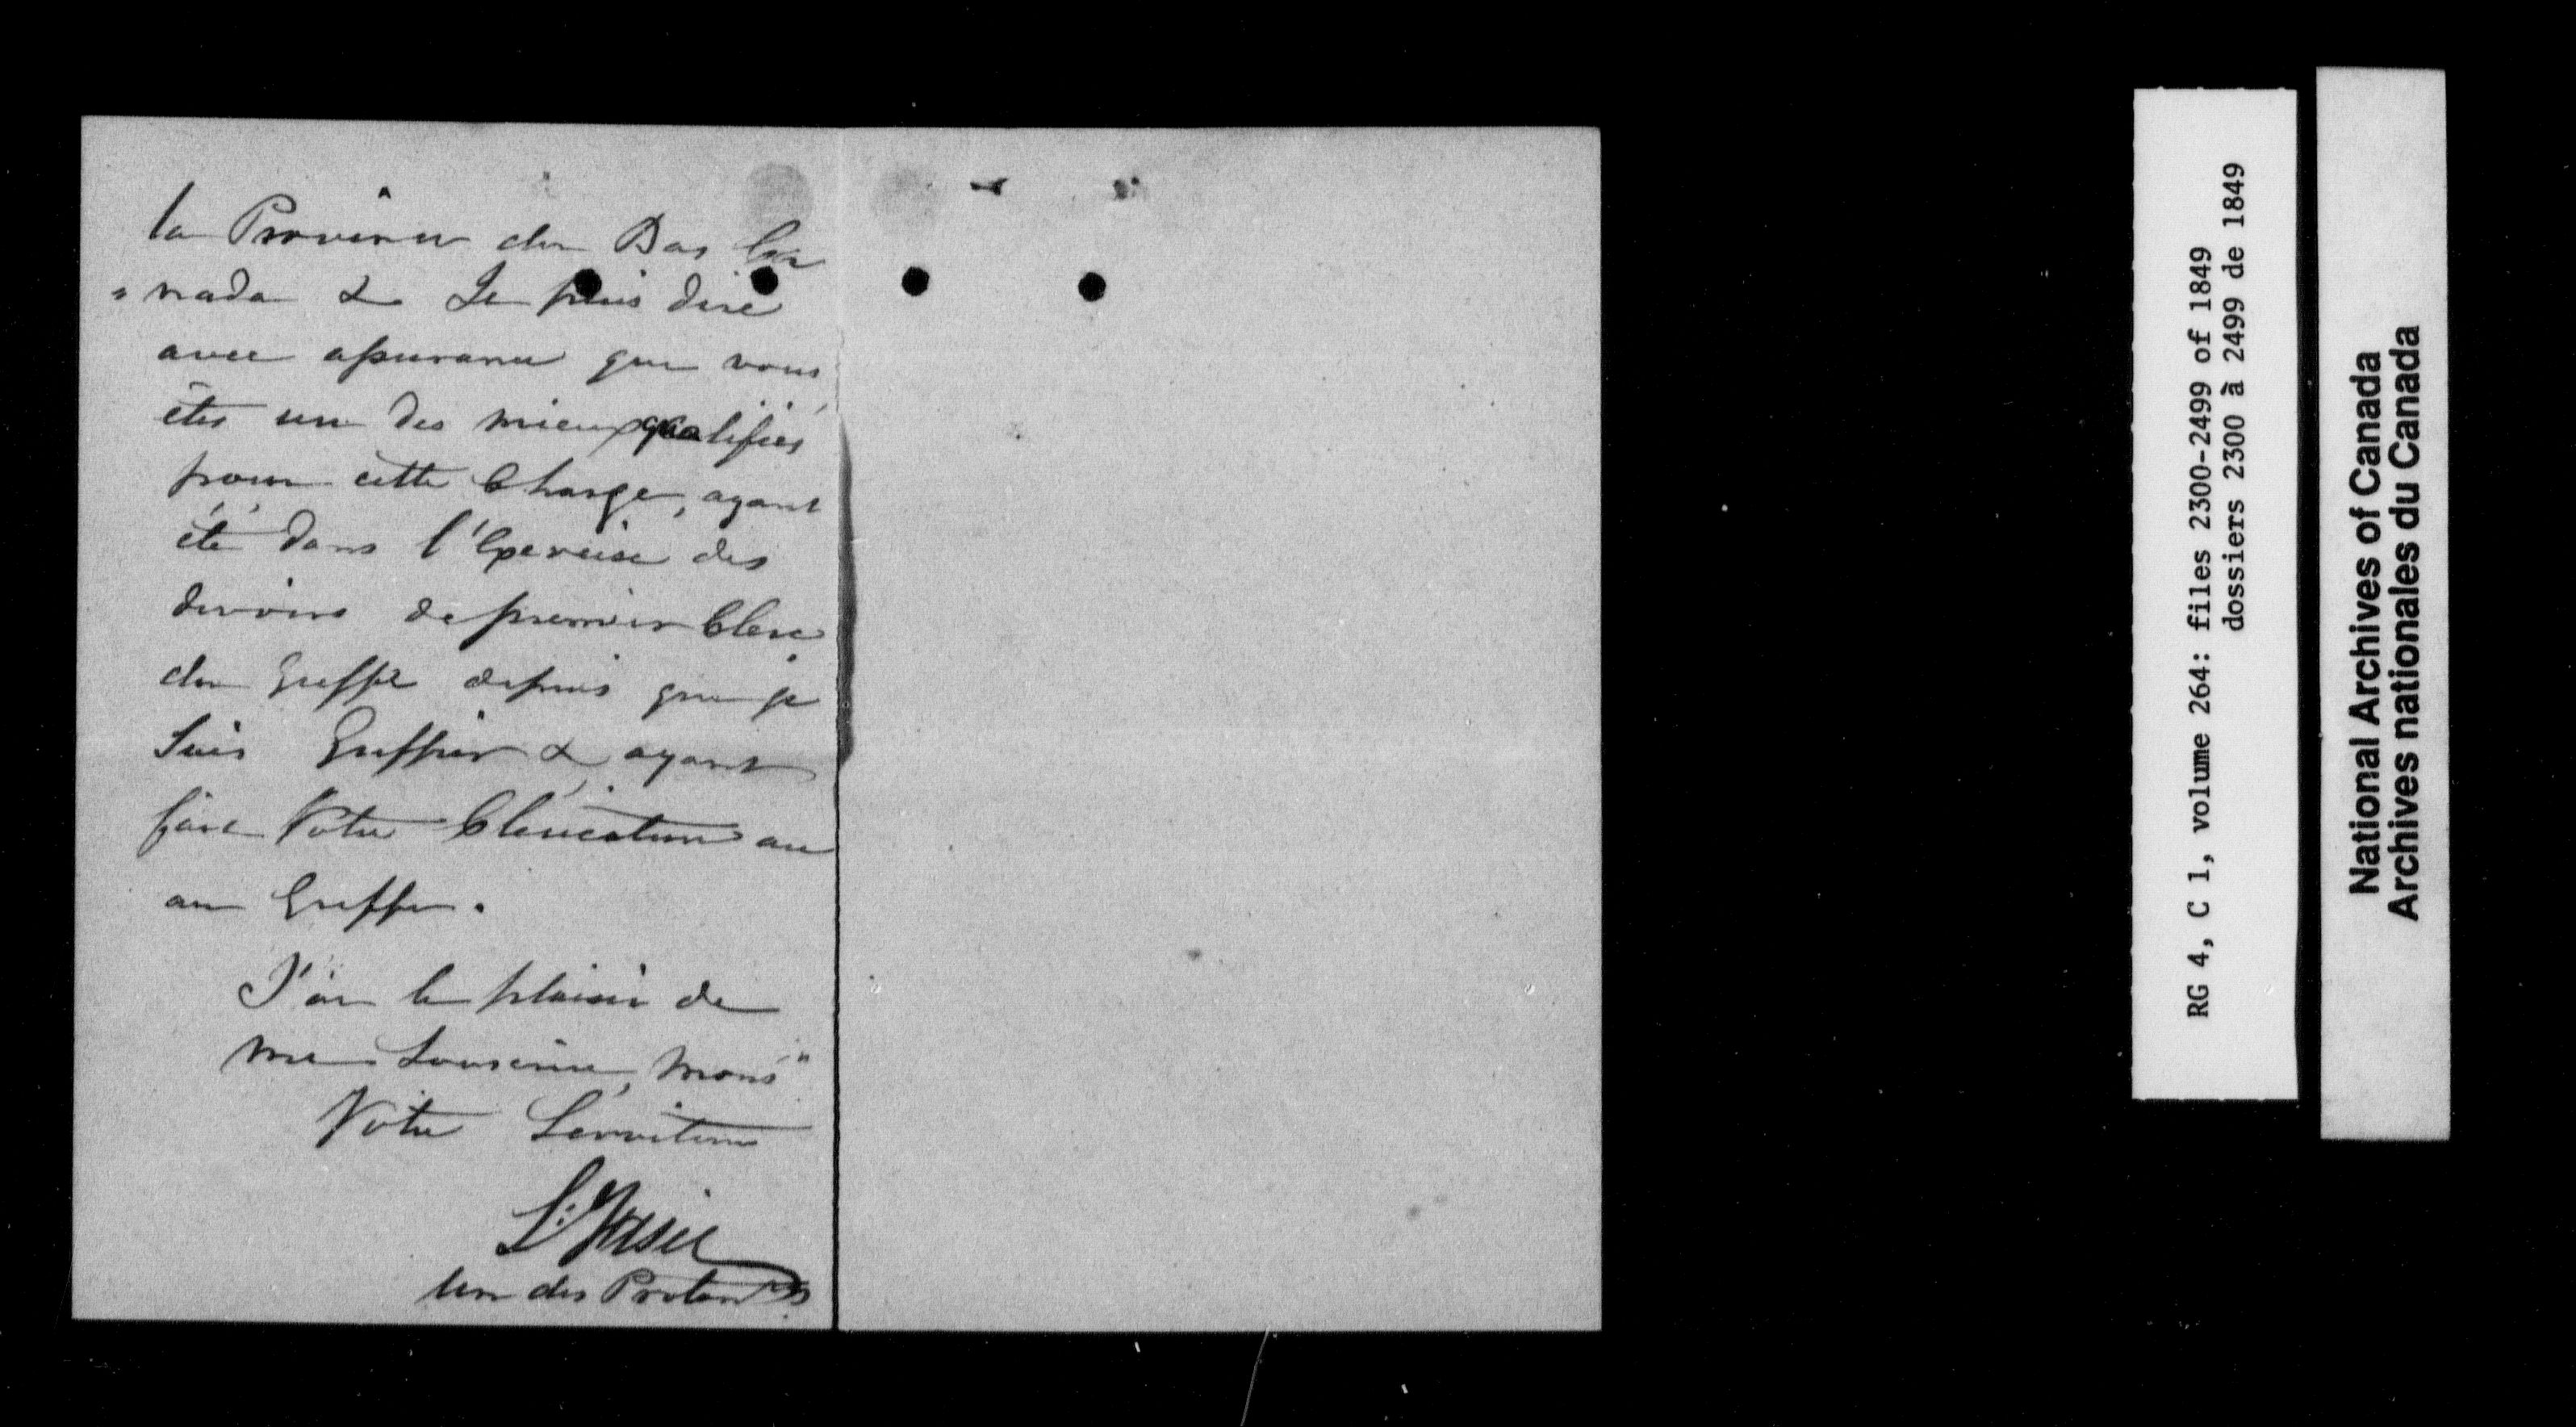 la Province du Bas Ca
"nada & Je puis dire
avec assurance que vous
êtes un des mieux qualifiés
pour cette Charge, ayant
été dans l'Exercise des
devoirs de premier Clerc
du Greffe depuis que je
Suis Greffier & ayant
fait Votre Clericature au
au Greffe.
J'ai le plaisir de
me Souscrire, Mons"
Votre Serviteur
Un des Proton
RG 4, C 1, volume 264: files 2300-2499 of 1849
dossiers 2300 à 2499 de 1849
National Archives of Canada
Archives nationales du Canada